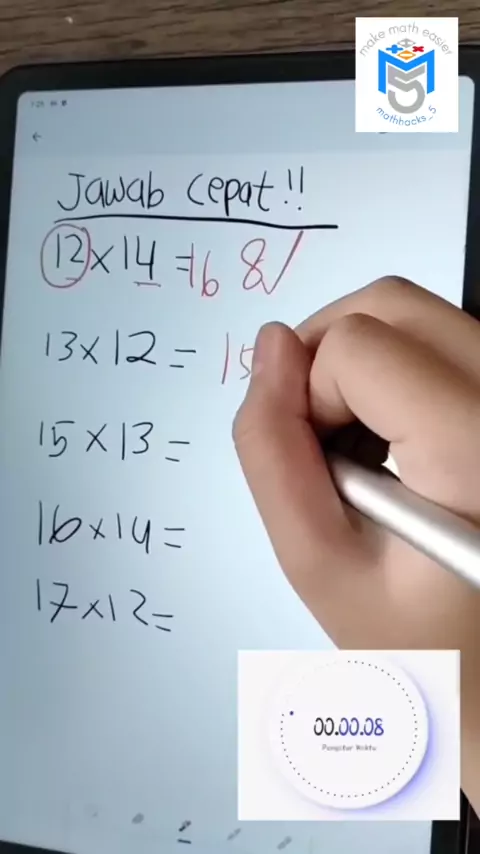 make math easier
M5
mathhacks_5
Jawab Cepat!!
12×14=168✓
13×12= 15
15×13=
16×14=
17×12=
00.00.08
Pengatur Waktu